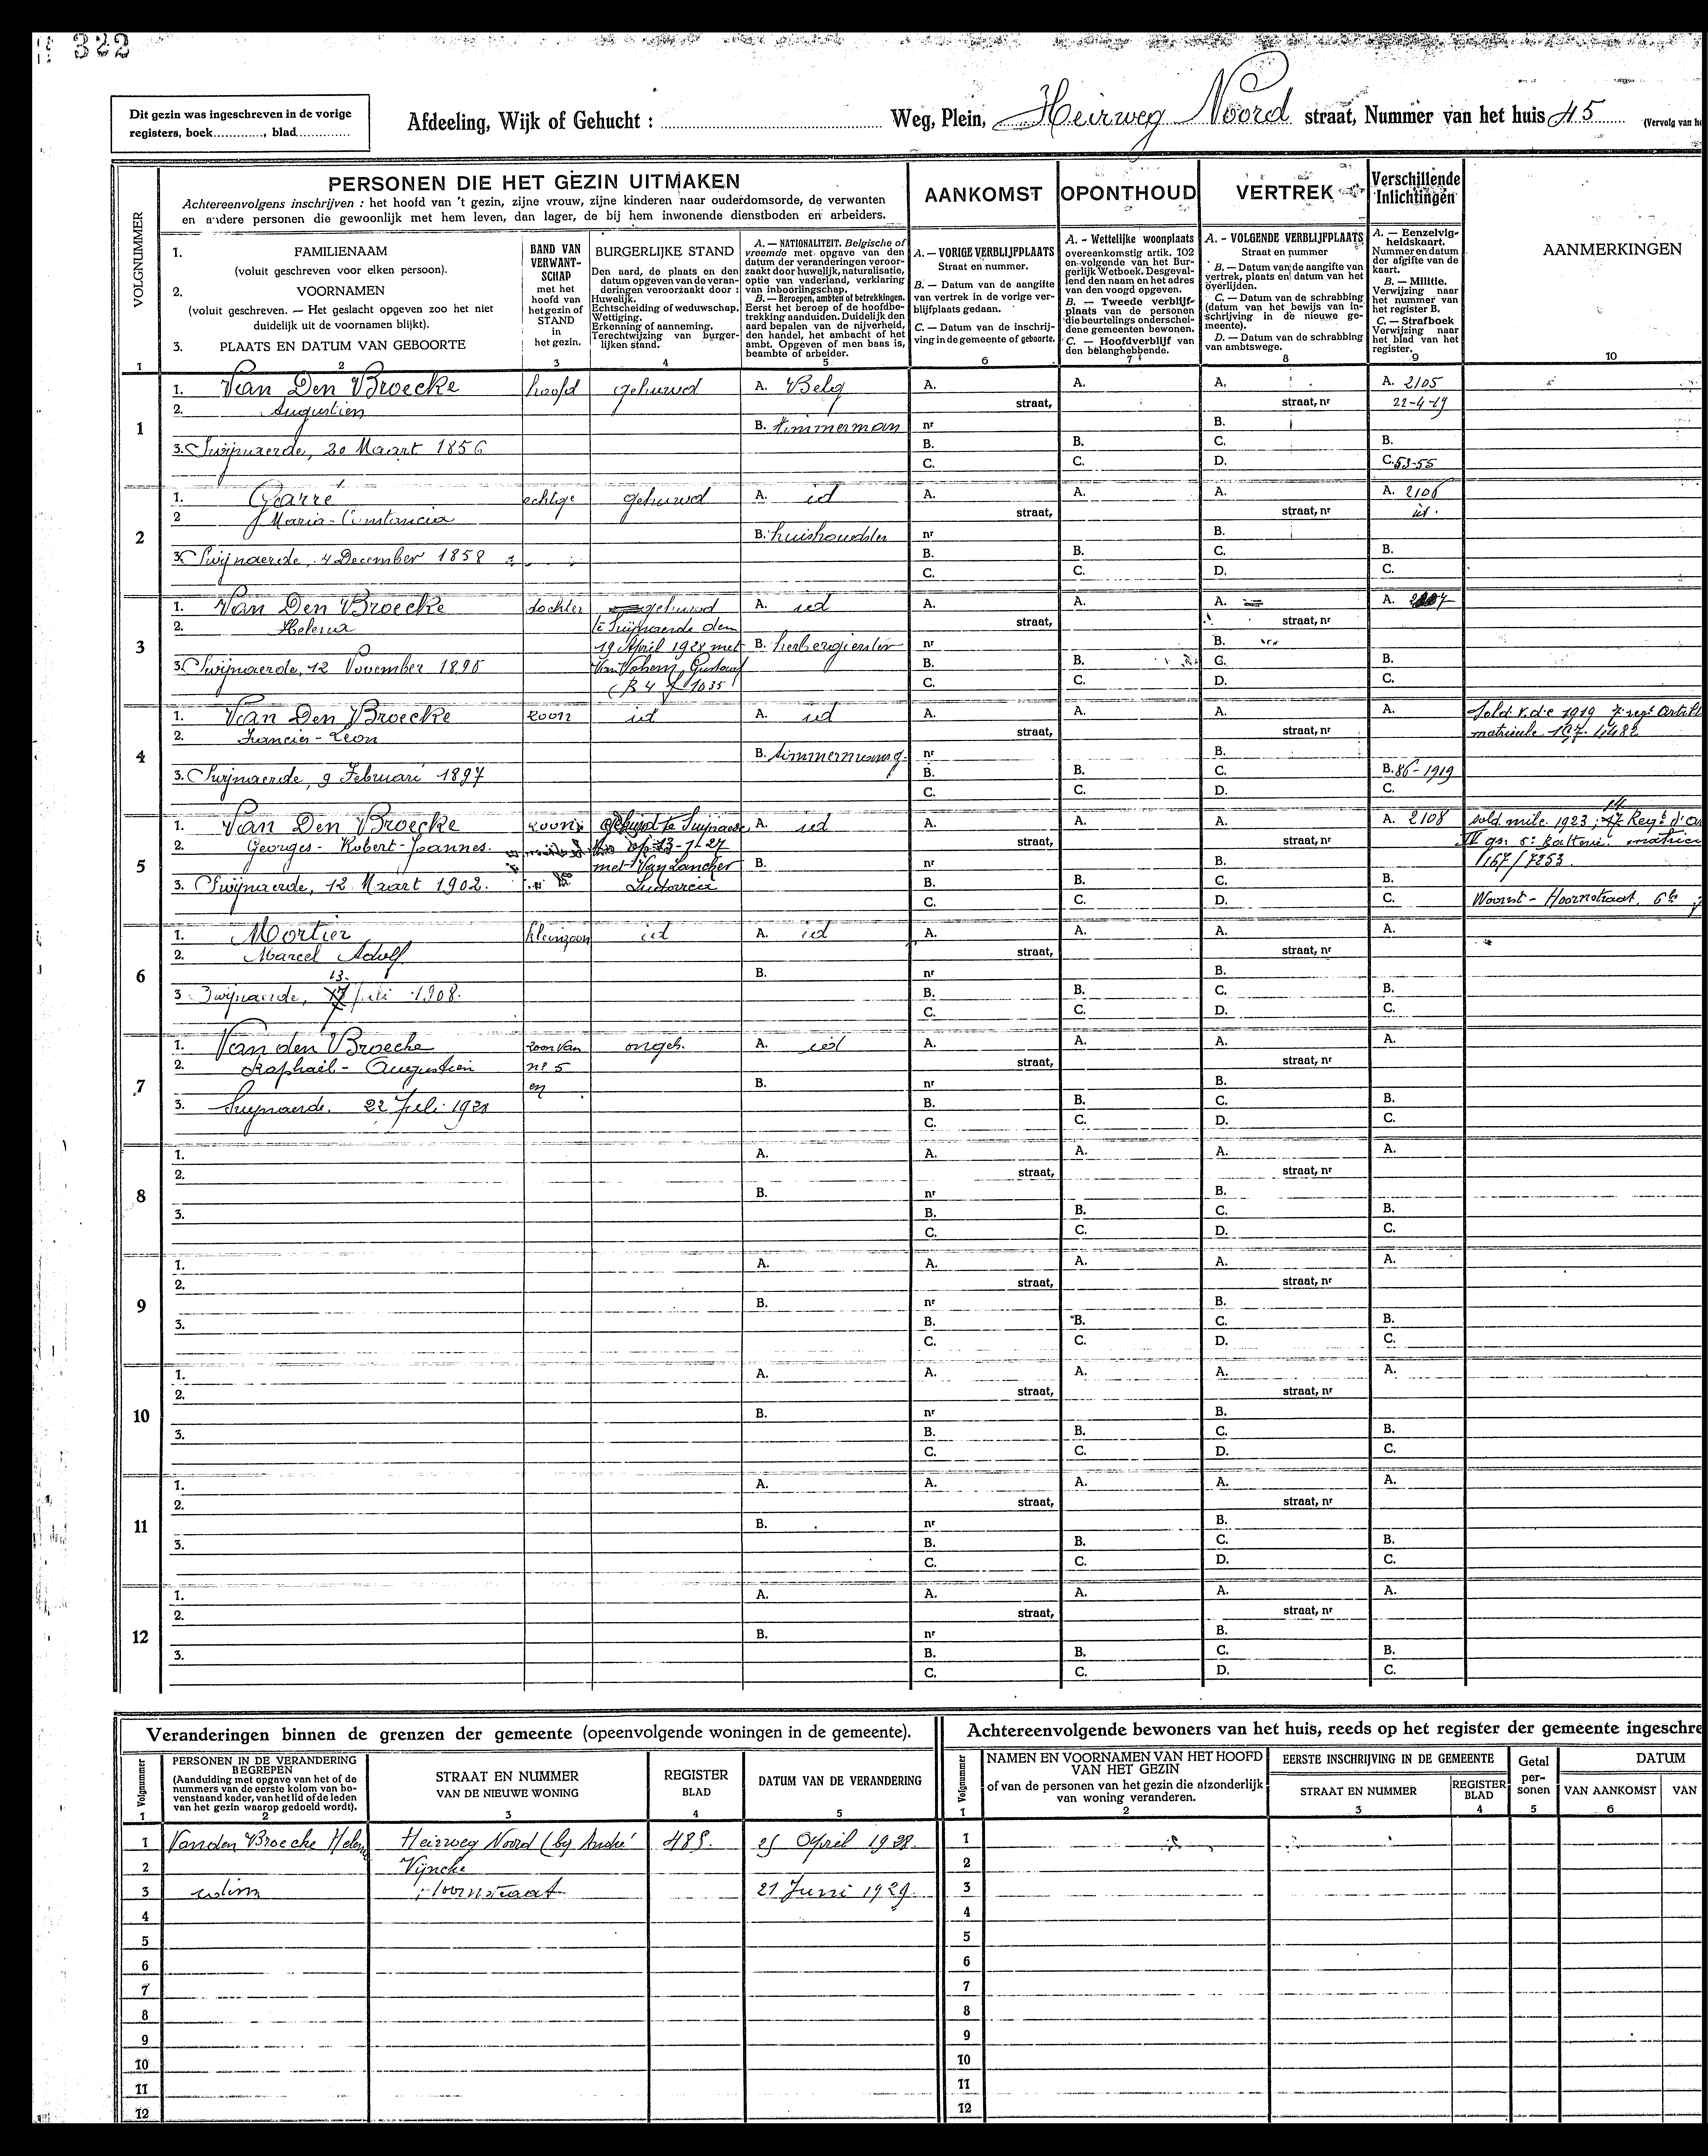 322
Dit gezin was ingeschreven in de vorige
registers, boek............, blad............
Afdeeling, Wijk of Gehucht : Weg, Plein, Heirweg Noord straat, Nummer van het huis 45
PERSONEN DIE HET GEZIN UITMAKEN
Achtereenvolgens inschrijven : het hoofd van 't gezin, zijne vrouw, zijne kinderen naar ouderdomsorde, de verwanten
en andere personen die gewoonlijk met hem leven, dan lager, de bij hem inwonende dienstboden en arbeiders.
AANKOMST
OPONTHOUD
VERTREK
Verschillende
Inlichtingen
VOLGNUMMER
1. FAMILIENAAM
(voluit geschreven voor elken persoon).
2. VOORNAMEN
(voluit geschreven. — Het geslacht opgeven zoo het niet
duidelijk uit de voornamen blijkt).
3. PLAATS EN DATUM VAN GEBOORTE
BAND VAN
VERWANT-
SCHAP
met het
hoofd van
het gezin of
STAND
in
het gezin.
BURGERLIJKE STAND
Den aard, de plaats en den
datum opgeven van de veran-
deringen veroorzaakt door :
Huwelijk.
Echtscheiding of weduwschap.
Wettiging.
Erkenning of aanneming.
Terechtwijzing van burger-
lijken stand.
A. — NATIONALITEIT. Belgische of
vreemde met opgave van den
datum der veranderingen veroor-
zaakt door huwelijk, naturalisatie,
optie van vaderland, verklaring
van inboorlingschap.
B. — Beroepen, ambten of betrekkingen.
Eerst het beroep of de hoofdbe-
trekking aanduiden. Duidelijk den
aard bepalen van de nijverheid,
den handel, het ambacht of het
ambt. Opgeven of men baas is,
beambte of arbeider.
A. — VORIGE VERBLIJFPLAATS
Straat en nummer.
B. — Datum van de aangifte
van vertrek in de vorige ver-
blijfplaats gedaan.
C. — Datum van de inschrij-
ving in de gemeente of geboorte.
A. - Wettelijke woonplaats
overeenkomstig artik. 102
en volgende van het Bur-
gerlijk Wetboek. Desgeval-
lend den naam en het adres
van den voogd opgeven.
B. — Tweede verblijf-
plaats van de personen
die beurtelings onderschei-
dene gemeenten bewonen.
C. — Hoofdverblijf van
den belanghebbende.
A. - VOLGENDE VERBLIJFPLAATS
Straat en nummer
B. — Datum van de aangifte van
vertrek, plaats en datum van het
overlijden.
C. — Datum van de schrabbing
(datum van het bewijs van in-
schrijving in de nieuwe ge-
meente).
D. — Datum van de schrabbing
van ambtswege.
A. — Eenzelvig-
heidskaart.
Nummer en datum
der afgifte van de
kaart.
B. — Militie.
Verwijzing naar
het nummer van
het register B.
C. — Strafboek
Verwijzing naar
het blad van het
register.
AANMERKINGEN
1 2 3 4 5 6 7 8 9 10
1
1. Van Den Broecke hoofd gehuwd A. Belg A. A. A. A. 2105
2. Augustien straat, straat, nr 22-4-19
B. timmerman nr B.
3. Swijnaerde, 20 Maart 1856 B. B. C. B.
C. C. D. C. 53-55
2
1. Garré echtge gehuwd A. id A. A. A. A. 2106
2 Maria-Constancia straat, straat, nr id.
B. huishoudster nr B.
3. Swijnaerde, 4 December 1858 B. B. C. B.
C. C. D. C.
3
1. Van Den Broecke dochter gehuwd A. id A. A. A. A. 2107
2. Helena te Swijnaerde den straat, straat, nr
19 April 1928 met B. herbergierster nr B.
3. Swijnaerde, 12 November 1895 B. B. C. B.
C. C. D. C.
4
1. Van Den Broecke zoon id A. id A. A. A. A. Sold. v. d. c 1919
2. Francies-Leon straat, straat, nr matricule
B. nr B.
3. Swijnaerde, 9 Februari 1897 B. B. C. B. 86-1919
C. C. D. C.
5
1. Van Den Broecke zoon A. id A. A. A. A. 2108 sold. milc. 1923;
2. Georges-Robert-Joannes. straat, straat, nr
met Van Lancker B. nr B. 167/7253
3. Swijnaerde, 12 Maart 1902. Ludovica B. B. C. B.
C. C. D. C. Woont - Hoornstraat,
6
1. Mortier kleinzoon id A. id A. A. A. A.
2. Marcel Adolf straat, straat, nr
13. B. nr B.
3 Swijnaerde, Juli 1908. B. B. C. B.
C. C. D. C.
7
1. Van den Broecke zoon van ongeh. A. id A. A. A. A.
2. Raphaël-Augustien n° 5 straat, straat, nr
en B. nr B.
3. Swijnaerde. 22 Juli 192 B. B. C. B.
C. C. D. C.
8
1. A. A. A. A. A.
2. straat, straat, nr
B. nr B.
3. B. B. C. B.
C. C. D. C.
9
1. A. A. A. A. A.
2. straat, straat, nr
B. nr B.
3. B. B. C. B.
C. C. D. C.
10
1. A. A. A. A. A.
2. straat, straat, nr
B. nr B.
3. B. B. C. B.
C. C. D. C.
11
1. A. A. A. A. A.
2. straat, straat, nr
B. nr B.
3. B. B. C. B.
C. C. D. C.
12
1. A. A. A. A. A.
2. straat, straat, nr
B. nr B.
3. B. B. C. B.
C. C. D. C.
Veranderingen binnen de grenzen der gemeente (opeenvolgende woningen in de gemeente).
Volgnummer
PERSONEN IN DE VERANDERING
BEGREPEN
(Aanduiding met opgave van het of de
nummers van de eerste kolom van bo-
venstaand kader, van het lid of de leden
van het gezin waarop gedoeld wordt).
STRAAT EN NUMMER
VAN DE NIEUWE WONING
REGISTER
BLAD
DATUM VAN DE VERANDERING
1 2 3 4 5
1 Vanden Broecke Helena Heirweg Noord (bij André 485. 25 April 1928.
2 Vijncke
3 idem Hoornstraat 21 Juni 1929.
4
5
6
7
8
9
10
11
12
Achtereenvolgende bewoners van het huis, reeds op het register der gemeente ingeschre
Volgnummer
NAMEN EN VOORNAMEN VAN HET HOOFD
VAN HET GEZIN
of van de personen van het gezin die afzonderlijk
van woning veranderen.
EERSTE INSCHRIJVING IN DE GEMEENTE
STRAAT EN NUMMER
REGISTER
BLAD
Getal
per-
sonen
DATUM
VAN AANKOMST VAN
1 2 3 4 5 6
1
2
3
4
5
6
7
8
9
10
11
12